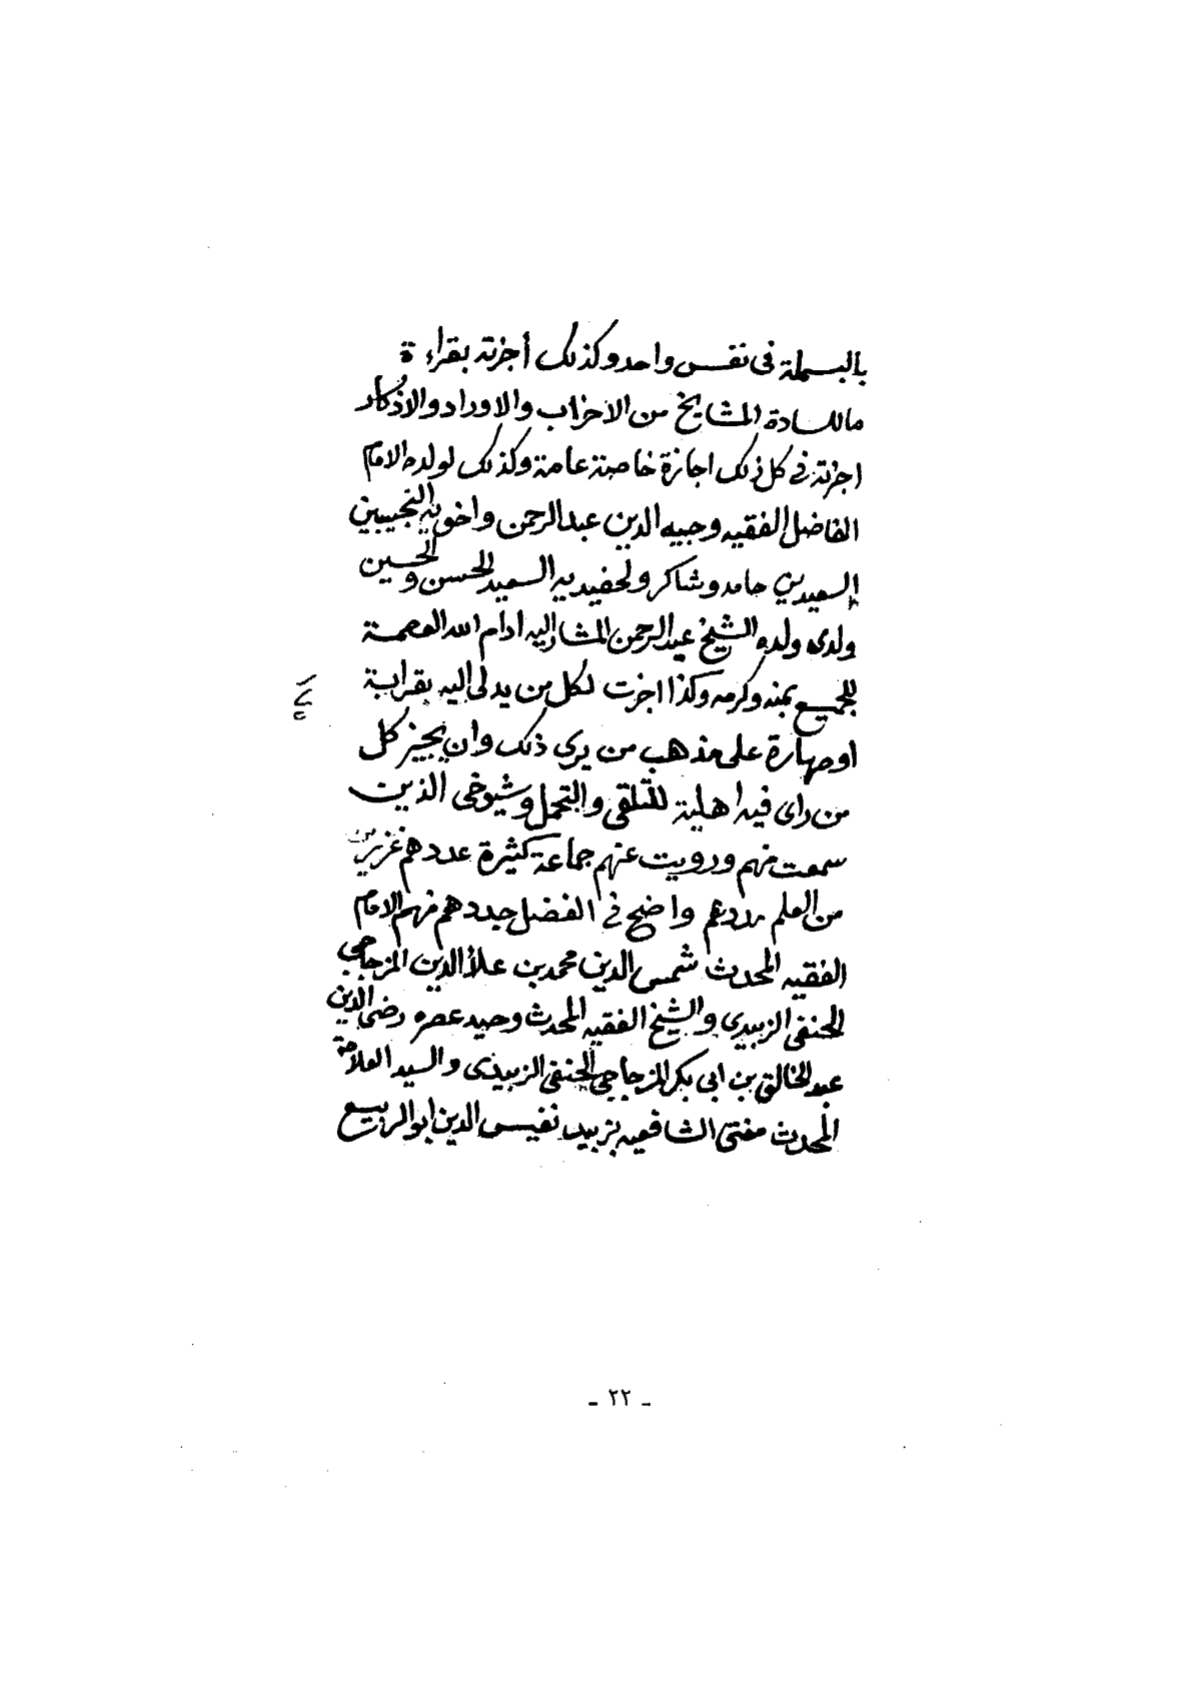 بالبسملة فى نفس واحد وكذلك أجزته بقراءة
ما للسادة المشايخ من الاحزاب والاوراد والاذكار
اجزته فى كل ذلك اجازة خاصة عامة وكذلك لولده الامام
الفاضل الفقيه وجيه الدين عبد الرحمن واخويه النجيبين
السعيدين حامد وشاكر ولحفيديه السعيد الحسن والحسين
ولدى ولده الشيخ عبد الرحمن المشار اليه ادام الله العصمة
للجميع بمنه وكرمه وكذا اجزت لكل من يدلى اليه بقرابة
او صهارة على مذهب من يرى ذلك وان يجيز كل
من راى فيه اهلية للتلقى والتحمل وشيوخى الذين
سمعت منهم ورويت عنهم جماعة كثيرة عددهم غزير
من العلم مددهم واضح فى الفضل جددهم فمنهم الامام
الفقيه المحدث شمس الدين محمد بن علاء الدين المزجاجى
الحنفى الزبيدى والشيخ الفقيه المحدث وحيد عصره رضى الدين
عبد الخالق بن ابى بكر المزجاجى الحنفى الزبيدى والسيد العلامة
المحدث مفتى الشافعيه بزبيد نفيس الدين ابو الربيع
- ٢٢ -